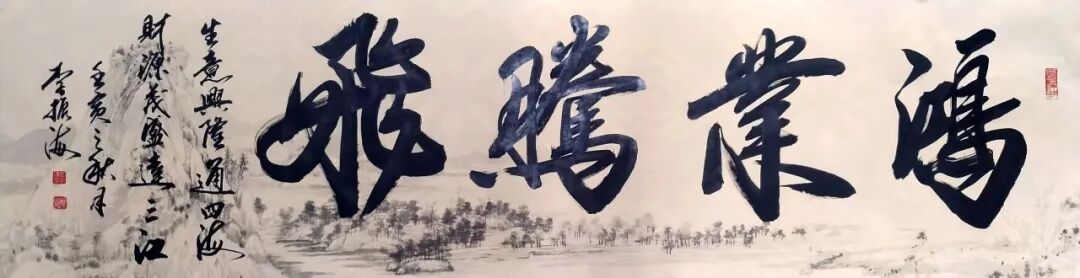 鴻業騰飛
生意興隆通四海
財源茂盛達三江
壬寅之秋月
李振海